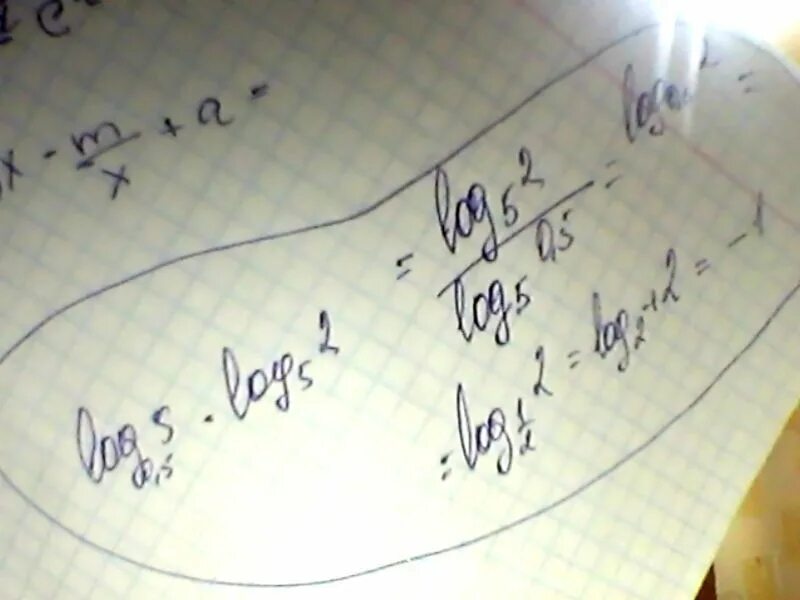 x - m/x + a =
log_{0,5} 5 · log_5 2 = (log_5 2)/(log_5 0,5) = log_{0,5} 2 =
= log_{1/2} 2 = log_{2^{-1}} 2 = -1